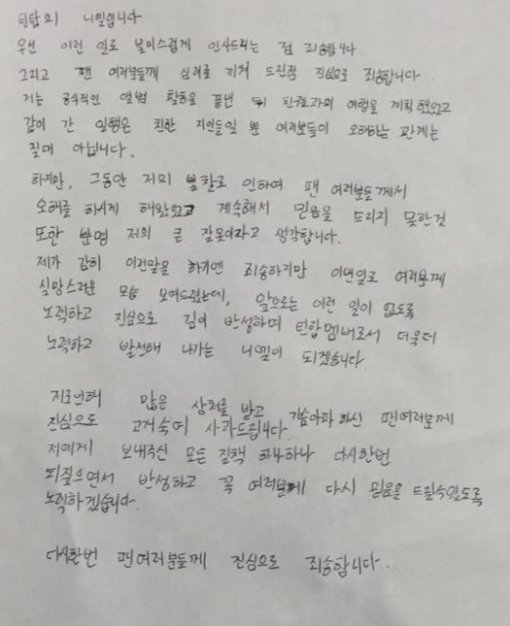 틴탑의 니엘입니다.
우선 이런 일로 불미스럽게 인사드리는 점 죄송합니다
그리고 팬 여러분들께 심려를 끼쳐 드린점 진심으로 죄송합니다.
저는 공식적인 앨범 활동을 끝낸 뒤 친구들과의 여행을 계획했었고
같이 간 일행은 친한 지인들일 뿐 여러분들이 오해하는 관계는
절대 아닙니다.
하지만, 그동안 저의 불찰로 인하여 팬 여러분들께서
오해를 하시게 해왔었고 계속해서 믿음을 드리지 못한것
또한 분명 저의 큰 잘못이라고 생각합니다.
제가 감히 이런말을 하기엔 죄송하지만 이번일로 여러분께
실망스러운 모습 보여드렸는데, 앞으로는 이런 일이 없도록
노력하고 진심으로 깊이 반성하며 틴탑멤버로서 더욱더
노력하고 발전해 나가는 니엘이 되겠습니다
저로인해 많은 상처를 받고 가슴아파하신 팬여러분께
진심으로 고개숙여 사과드립니다.
저에게 보내주신 모든 질책 하나하나 다시한번
되짚으면서 반성하고 꼭 여러분께 다시 믿음을 드릴수있도록
노력하겠습니다.
다시한번 팬여러분들께 진심으로 죄송합니다.